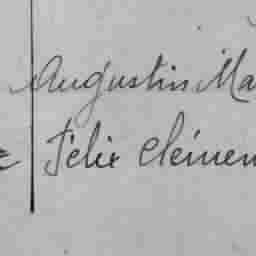 Augustin Ma
Félix Clémen